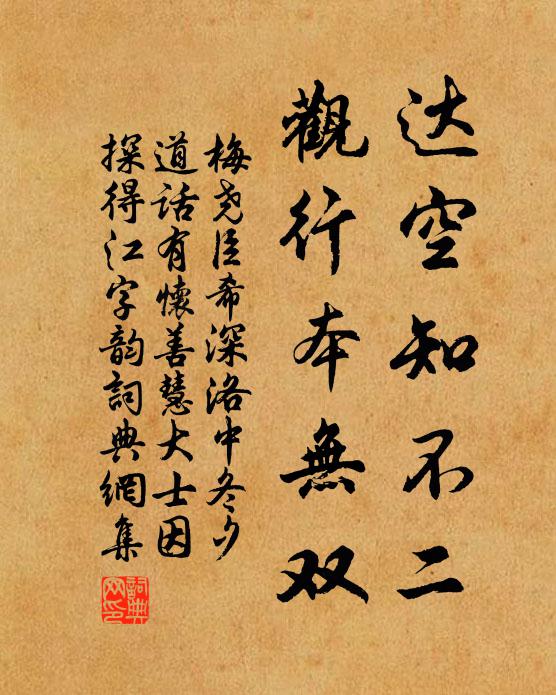 达空知不二
觀行本無双
梅尧臣希深洛中冬夕
道话有懷善慧大士因
探得江字韵詞典網集
詞典网印